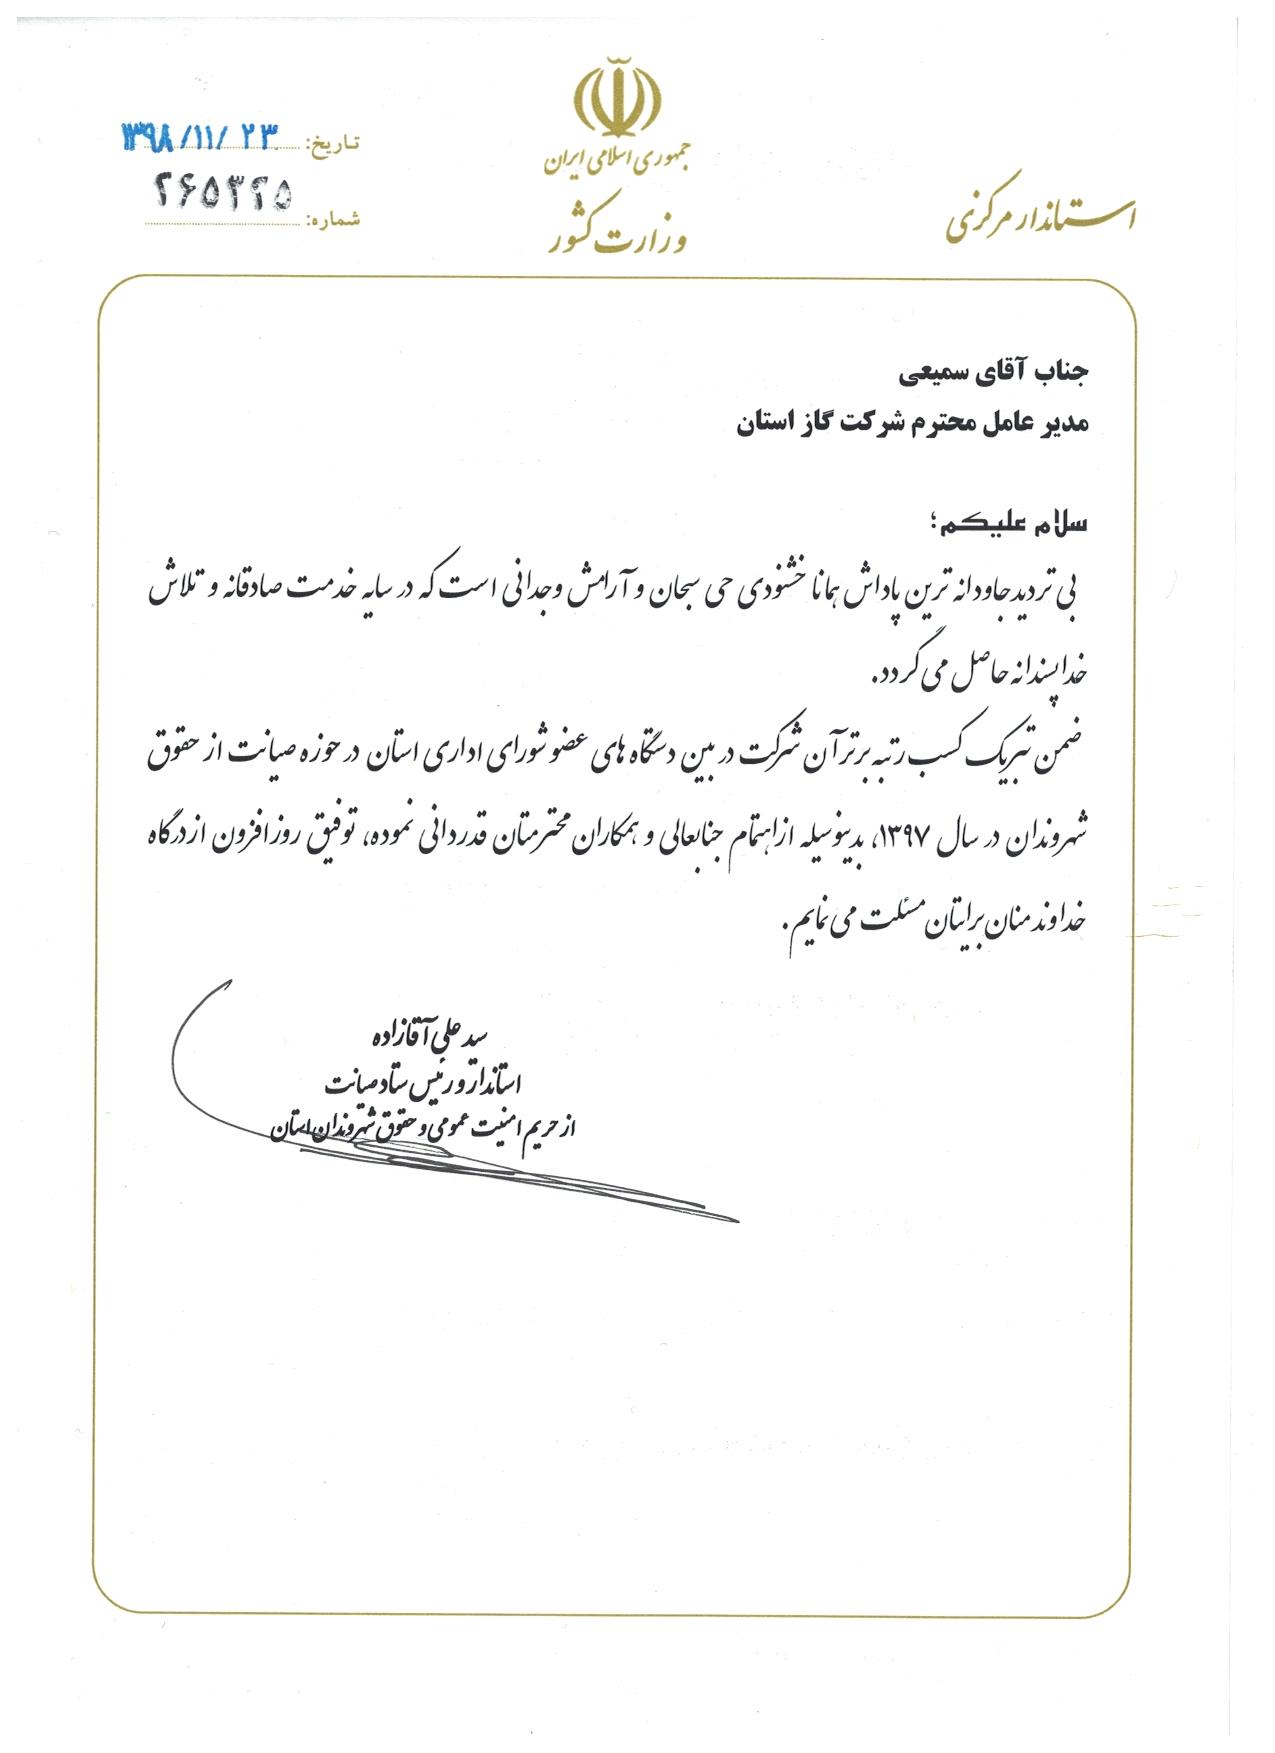 جمهوری اسلامی ایران
وزارت کشور
استاندار مرکزی
تاریخ: ۱۳۹۸/۱۱/۲۳
شماره: ۲۶۵۳۲۵
جناب آقای سمیعی
مدیر عامل محترم شرکت گاز استان
سلام علیکم؛
بی تردید جاودانه ترین پاداش همانا خشنودی حی سبحان و آرامش وجدانی است که در سایه خدمت صادقانه و تلاش
خداپسندانه حاصل می گردد.
ضمن تبریک کسب رتبه برتر آن شرکت در بین دستگاه های عضو شورای اداری استان در حوزه صیانت از حقوق
شهروندان در سال ۱۳۹۷، بدینوسیله از اهتمام جنابعالی و همکاران محترمتان قدردانی نموده، توفیق روزافزون از درگاه
خداوند منان برایتان مسئلت می نمایم.
سید علی آقازاده
استاندار و رئیس ستاد صیانت
از حریم امنیت عمومی و حقوق شهروندان استان